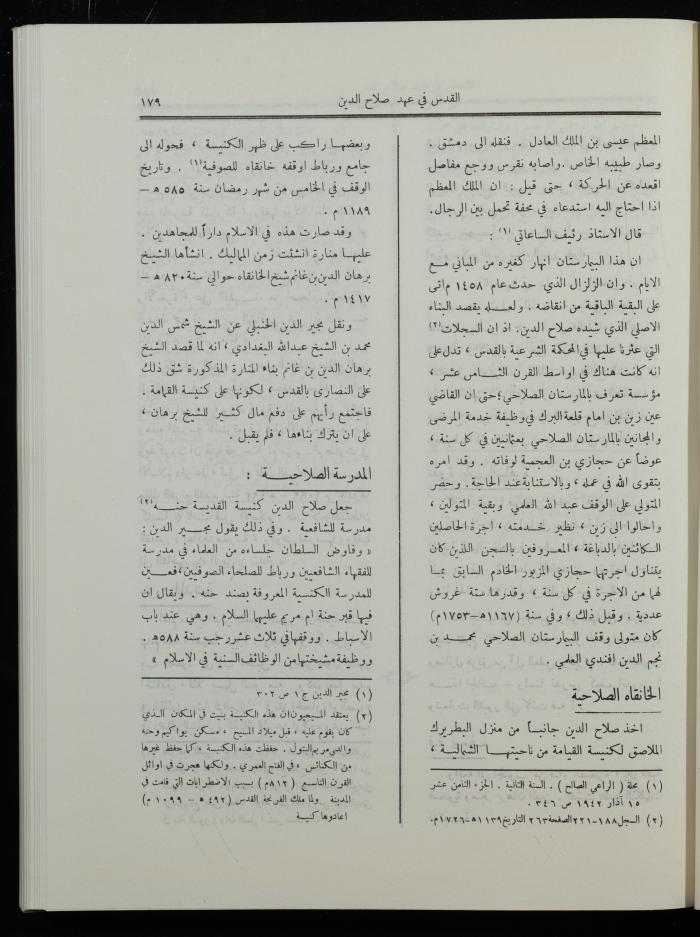 القدس في عهد صلاح الدين
١٧٩
المعظم عيسى بن الملك العادل . فنقله الى دمشق .
وصار طبيبه الخاص . واصابه نقرس ووجع مفاصل
اقعده عن الحركة ، حتى قيل : ان الملك المعظم
اذا احتاج اليه استدعاه في محفة تحمل بين الرجال.
قال الاستاذ رئيف الساعاتي (١) :
ان هذا البيمارستان انهار كغيره من المباني مع
الايام . وان الزلزال الذي حدث عام ١٤٥٨ م اتى
على البقية الباقية من انقاضه . ولعله يقصد البناء
الاصلي الذي شيده صلاح الدين. اذ ان السجلات (٢)
التي عثرنا عليها في المحكمة الشرعية بالقدس ، تدل على
انه كانت هناك في اواسط القرن الثامن عشر ،
مؤسسة تعرف بالمارستان الصلاحي ؛ حتى ان القاضي
عين زين بن امام قلعة البرك في وظيفة خدمة المرضى
والمجانين بالمارستان الصلاحي بعثمانيين في كل سنة ،
عوضاً عن حجازي بن العجمية لوفاته . وقد امره
بتقوى الله في عمله ، وبالاستنابة عند الحاجة . وحضر
المتولي على الوقف عبد الله العلمي وبقية المتولين ،
واحالوا الى زين ، نظير خدمته ، اجرة الحاصلين
الكائنين بالدباغة ، المعروفين بالسجن اللذين كان
يتناول اجرتهما حجازي المزبور الخادم السابق بما
لهما من الاجرة في كل سنة ، وقدرها ستة غروش
عددية . وقبل ذلك ، وفي سنة (١١٦٧هـ–١٧٥٣م)
كان متولي وقف البيمارستان الصلاحي محمد بن
نجم الدين افندي العلمي .
الخانقاه الصلاحية
اخذ صلاح الدين جانباً من منزل البطريرك
الملاصق لكنيسة القيامة من ناحيتها الشمالية ،
(١) مجلة ( الراعي الصالح ) . السنة الثانية . الجزء الثامن عشر
١٥ آذار ١٩٤٢ ص ٣٤٦ .
(٢) السجل ١٨٨–٢٢١ الصفحة ٢٦٣ التاريخ ١١٣٩هـ–١٧٢٦م.
وبعضها راكب على ظهر الكنيسة ، فحوله الى
جامع ورباط اوقفه خانقاه للصوفية (١) . وتاريخ
الوقف في الخامس من شهر رمضان سنة ٥٨٥ هـ –
١١٨٩ م .
وقد صارت هذه في الاسلام داراً للمجاهدين .
عليها منارة انشئت زمن المماليك . انشأها الشيخ
برهان الدين بن غانم شيخ الخانقاه حوالي سنة ٨٢٠ هـ –
١٤١٧ م .
ونقل مجير الدين الحنبلي عن الشيخ شمس الدين
محمد بن الشيخ عبدالله البغدادي ، انه لما قصد الشيخ
برهان الدين بن غانم بناء المنارة المذكورة شق ذلك
على النصارى بالقدس ، لكونها على كنيسة القمامة .
فاجتمع رأيهم على دفع مال كثير للشيخ برهان ،
على ان يترك بناءها ، فلم يقبل .
المدرسة الصلاحية :
جعل صلاح الدين كنيسة القديسة حنه (٢)
مدرسة للشافعية . وفي ذلك يقول مجير الدين :
« وفاوض السلطان جلساءه من العلماء في مدرسة
للفقهاء الشافعيين ورباط للصلحاء الصوفيين ، فعين
للمدرسة الكنسية المعروفة بصند حنه . ويقال ان
فيها قبر حنة ام مريم عليهما السلام . وهي عند باب
الاسباط . ووقفها في ثلاث عشر رجب سنة ٥٨٨ هـ .
ووظيفة مشيختها من الوظائف السنية في الاسلام »
(١) مجير الدين ج ١ ص ٣٠٢
(٢) يعتقد المسيحيون ان هذه الكنيسة بنيت في المكان الذي
كان يقوم عليه ، قبل ميلاد المسيح ، مسكن يواكيم وحنه
والدي مريم البتول . حفظت هذه الكنيسة ، كما حفظ غيرها
من الكنائس ، في الفتح العمري . ولكنها هجرت في اوائل
القرن التاسع ( ٨١٢م ) بسبب الاضطرابات التي قامت في
المدينة ولما ملك الفرنجة القدس ( ٤٩٢ هـ – ١٠٩٩ م )
اعادوها كنيسة